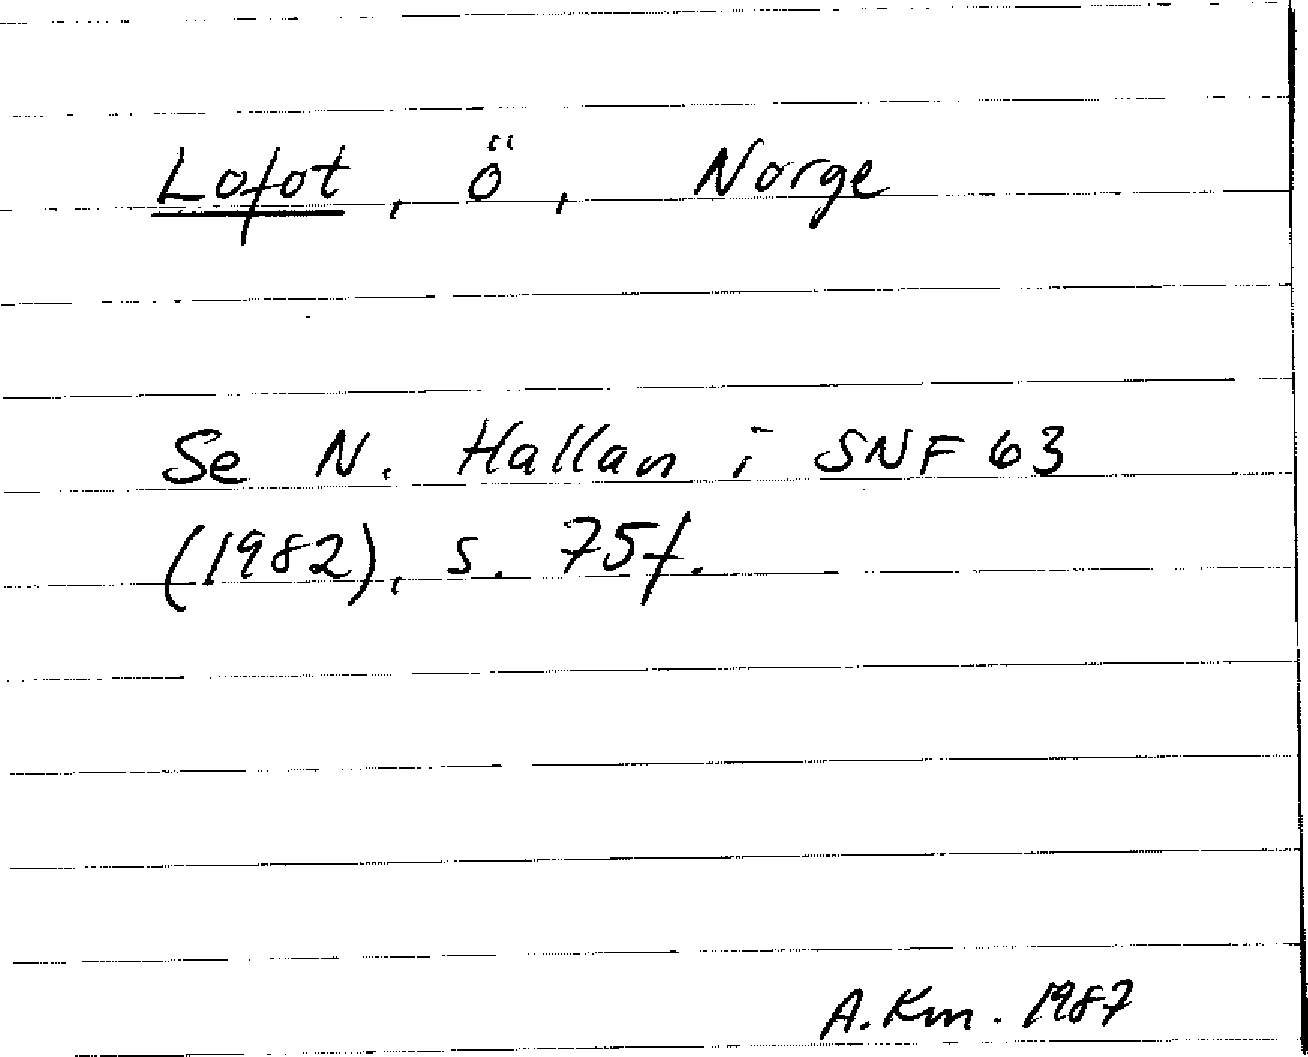 Lofot, ö, Norge
Se N. Hallan i SNF 63
(1982), s. 75f.
A. Km. 1987